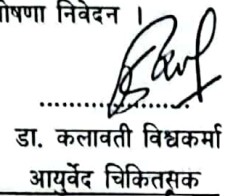 घोषणा निवेदन ।
....................
डा. कलावती विश्वकर्मा
आयुर्वेद चिकित्सक